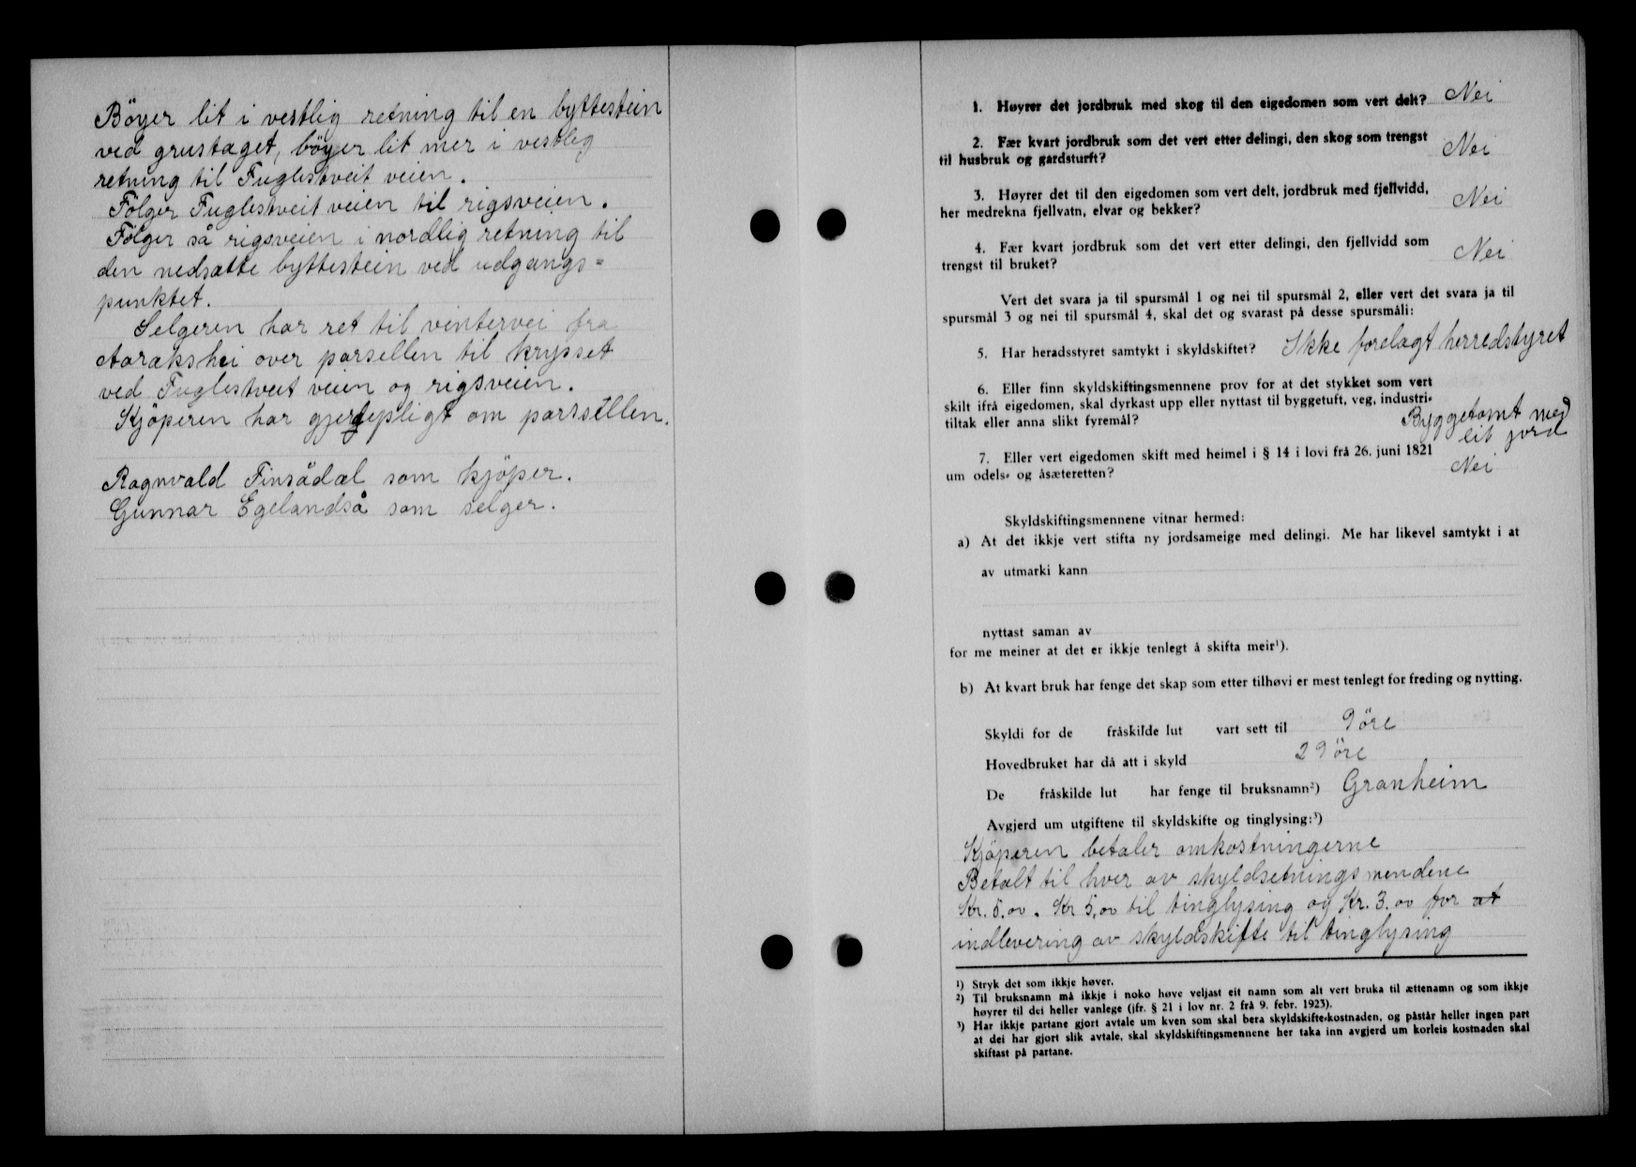 Böyer lit i vestlig retning til en byttestein
ved grustaget, böyer lit mer i vestlig
retning til Fuglestveit veien.
Fölger Fuglestveit veien til rigsveien.
Fölger så rigsveien i nordlig retning til
den nedsatte byttestein ved udgangs=
punktet.
Selgeren har ret til vintervei fra
Aarakshei over parsellen til krysset
ved Fuglestveit veien og rigsveien.
Kjöperen har gjerdepligt om parsellen.
Ragnvald Finsådal som kjöper.
Gunnar Egelandså som selger.
1. Høyrer det jordbruk med skog til den eigedomen som vert delt? Nei
2. Fær kvart jordbruk som det vert etter delingi, den skog som trengst
til husbruk og gardsturft? Nei
3. Høyrer det til den eigedomen som vert delt, jordbruk med fjellvidd,
her medrekna fjellvatn, elvar og bekker? Nei
4. Fær kvart jordbruk som det vert etter delingi, den fjellvidd som
trengst til bruket? Nei
Vert det svara ja til spursmål 1 og nei til spursmål 2, eller vert det svara ja til
spursmål 3 og nei til spursmål 4, skal det og svarast på desse spursmåli:
5. Har heradsstyret samtykt i skyldskiftet? Ikke forelagt herredstyret
6. Eller finn skyldskiftingsmennene prov for at det stykket som vert
skilt ifrå eigedomen, skal dyrkast upp eller nyttast til byggetuft, veg, industri-
tiltak eller anna slikt fyremål? Byggetomt med
lit jord
7. Eller vert eigedomen skift med heimel i § 14 i lovi frå 26. juni 1821
um odels- og åsæteretten? Nei
Skyldskiftingsmennene vitnar hermed:
a) At det ikkje vert stifta ny jordsameige med delingi. Me har likevel samtykt i at
av utmarki kann
nyttast saman av
for me meiner at det er ikkje tenlegt å skifta meir¹).
b) At kvart bruk har fenge det skap som etter tilhøvi er mest tenlegt for freding og nytting.
Skyldi for de fråskilde lut vart sett til 9 öre
Hovedbruket har då att i skyld 29 öre
De fråskilde lut har fenge til bruksnamn²) Granheim
Avgjerd um utgiftene til skyldskifte og tinglysing:³)
Kjöperen betaler omkostningerne
Betalt til hver av skyldsetningsmendene
Kr. 5.00. Kr 5,00 til tinglysing og Kr. 3.00 for at
indlevering av skyldskifte til tinglysing
¹) Stryk det som ikkje høver.
²) Til bruksnamn må ikkje i noko høve veljast eit namn som alt vert bruka til ættenamn og som ikkje
høyrer til dei heller vanlege (jfr. § 21 i lov nr. 2 frå 9. febr. 1923).
³) Har ikkje partane gjort avtale um kven som skal bera skyldskifte-kostnaden, og påstår heller ingen part
at dei har gjort slik avtale, skal skyldskiftingsmennene her taka inn avgjerd um korleis kostnaden skal
skiftast på partane.